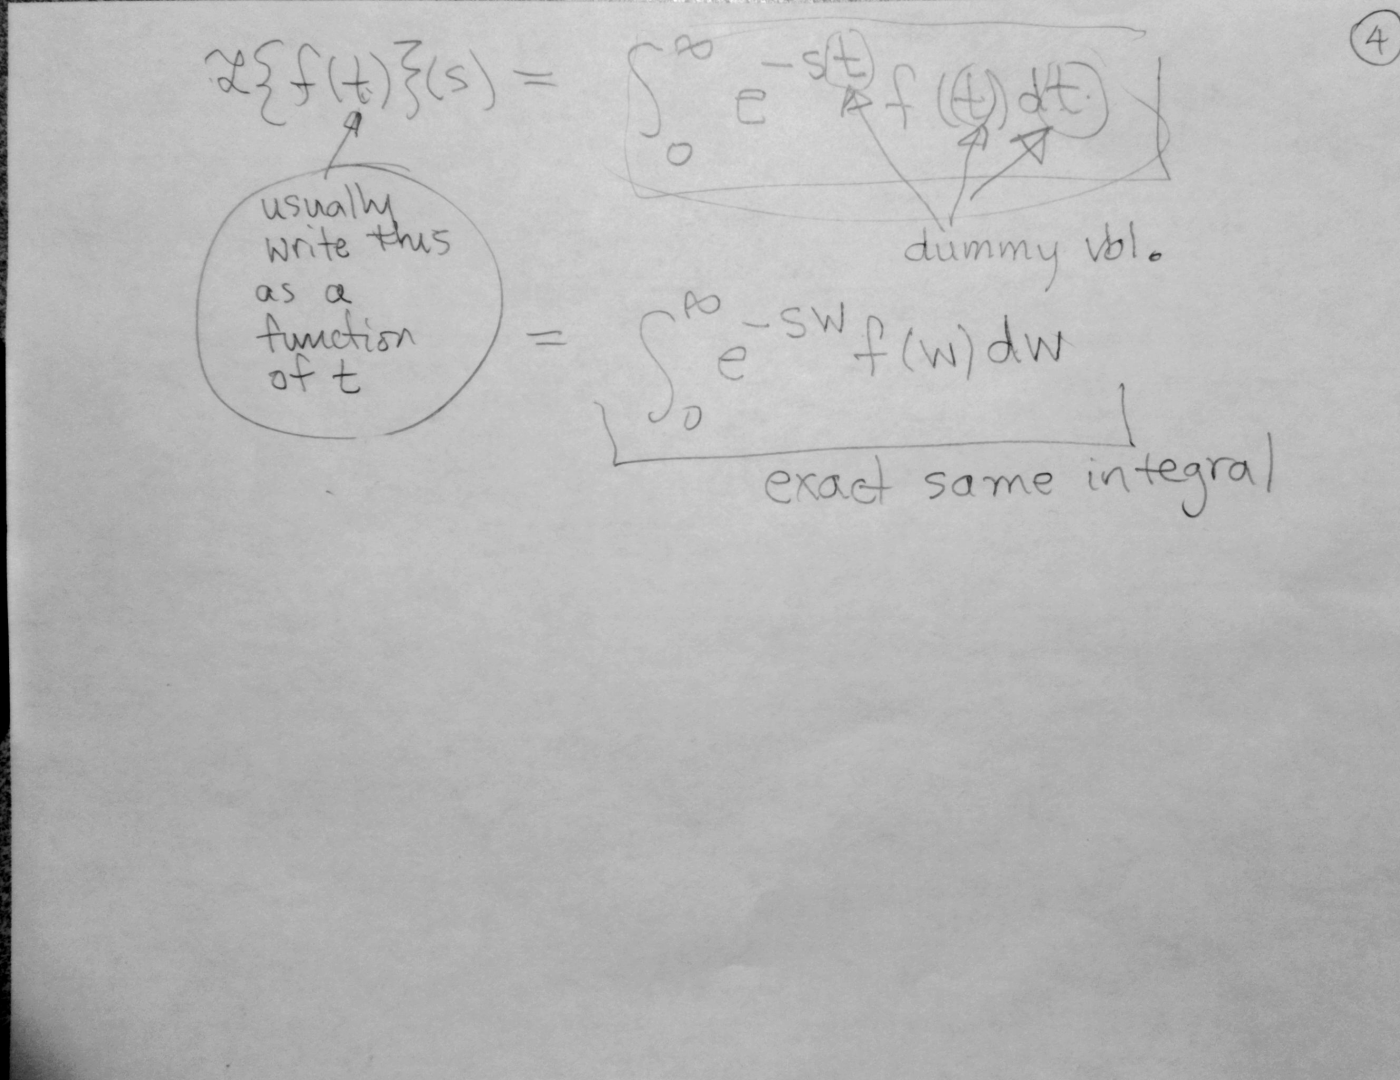 ④
ℒ{f(t)}(s) = ∫₀^∞ e^{-s(t)} f(t) dt
usually
write this
as a
function
of t
dummy vbl.
= ∫₀^∞ e^{-sw} f(w) dw
exact same integral